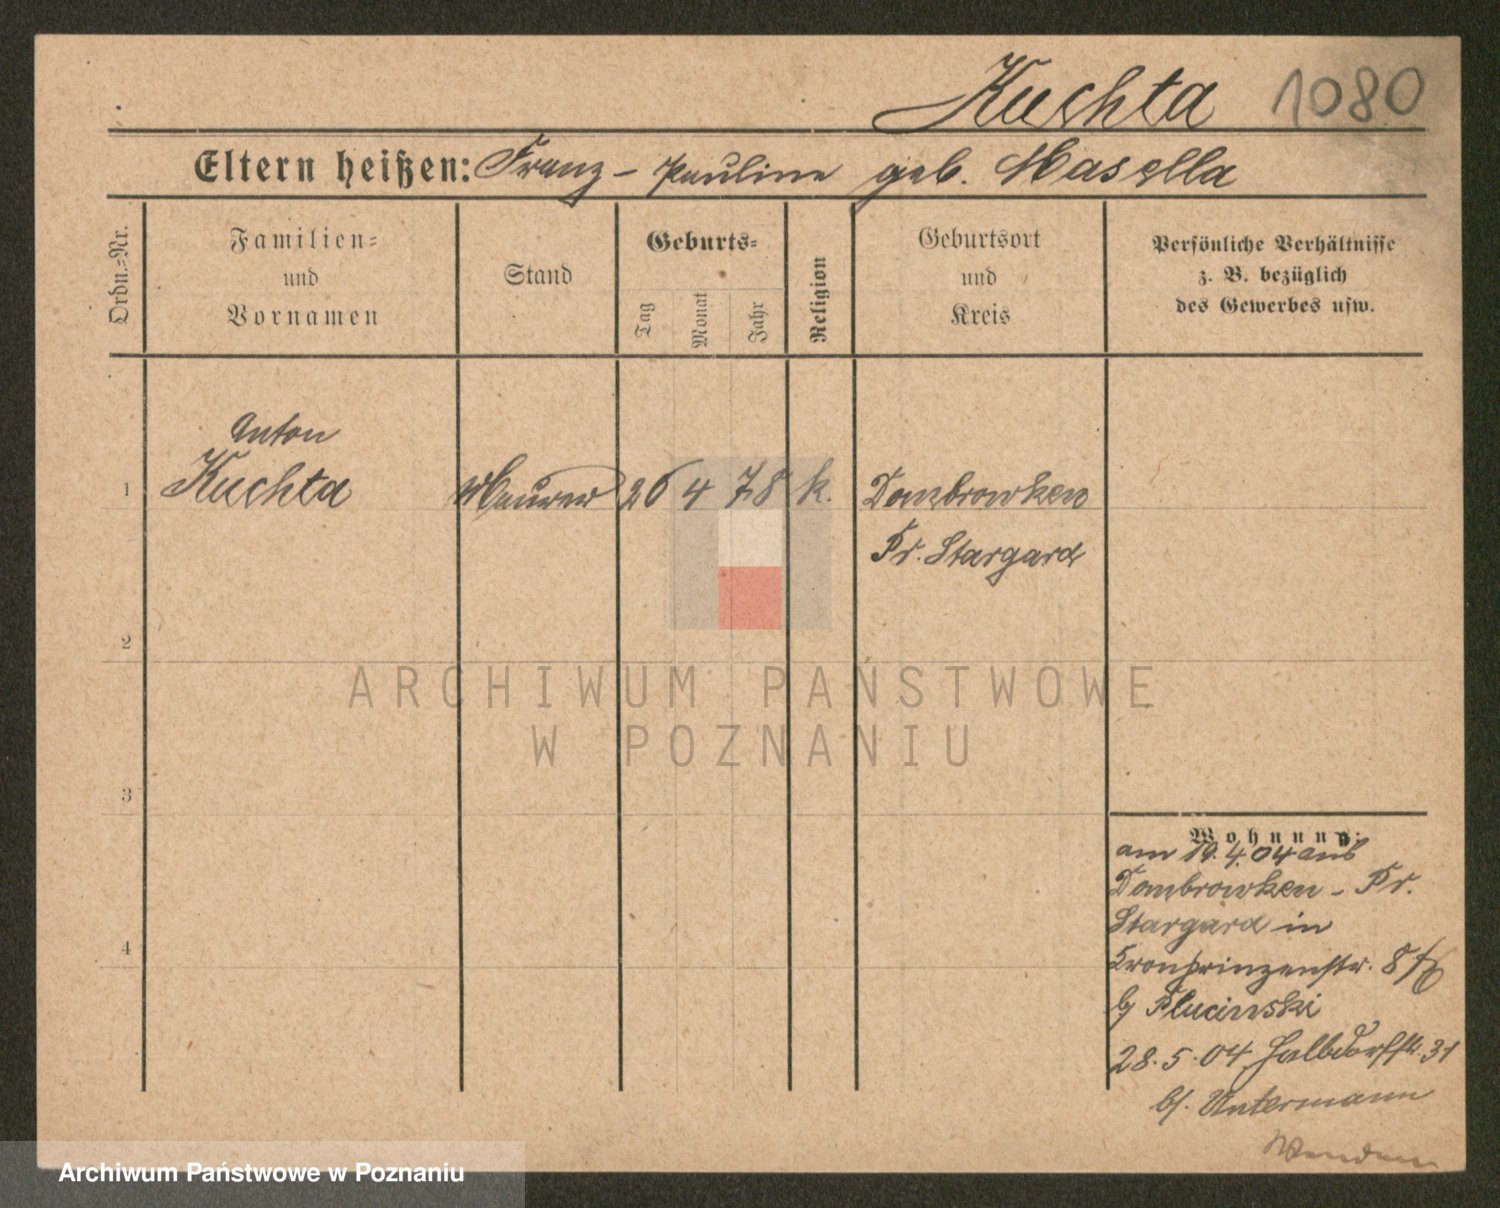 Kuchta 1080
Eltern heißen: Franz - Pauline geb. Masella
Ordn.-Nr.
Familien-
und
Vornamen
Stand
Geburts-
Tag
Monat
Jahr
Religion
Geburtsort
und
Kreis
Persönliche Verhältnisse
z. B. bezüglich
des Gewerbes usw.
Anton
1 Kuchta Maurer 26 4 78 k. Dombrowken
Pr. Stargard
2
ARCHIWUM PAŃSTWOWE
W POZNANIU
3
Wohnung:
am 19.4.04 aus
Dombrowken - Pr.
Stargard in
4
Kronprinzenstr.
b/ Plucinski
28.5.04 Halbdorfstr. 31
b/. Untermann
Wenden
Archiwum Państwowe w Poznaniu